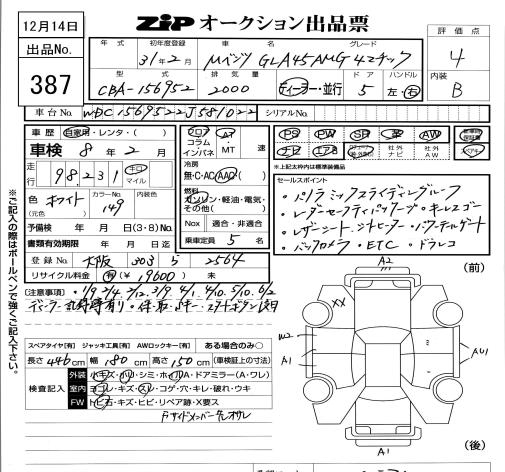 12月14日
出品No.
387
ZIP オークション出品票
評価点
4
内装
B
年式 初年度登録 車名 グレード
31年2月 Mベンツ GLA45AMG 4マチック
型式 排気量 ドア ハンドル
CBA-156952 2000 ディーラー・並行 5 左・右
車台No. WDC1569522J581022 シリアルNo.
車歴 自家用・レンタ・( )
車検 8年2月
走行 98,231 キロ マイル
色 (元色) ホワイト カラーNo. 149 内装色
予備検 年 月 日(3・8)No.
書類有効期限 年 月 日迄
登録No. 大阪 303 5 2564
リサイクル料金 有(¥19600) 未
フロア コラム インパネ AT・MT 速
冷房 無・C・AC・AAC
燃料 ガソリン・軽油・電気・その他( )
Nox 適合・非適合
乗車定員 5 名
PS PW SR 革 AW
ナビ エアB 社外ナビ 社外AW
※上記太枠内は標準装備品
セールスポイント
・パノラミックスライディングルーフ
・レーダーセーフティパッケージ・キーレスゴー
・レザーシート・シートヒーター・パワーテールゲート
・バックカメラ・ETC・ドラレコ
(注意事項)
スペアタイヤ[有] ジャッキ工具[有] AWロックキー[有] ある場合のみ○
長さ 446cm 幅 180cm 高さ 150cm (車検証上の寸法)
検査記入
外装 小キズ・凹・シミ・ホイルA・ドアミラー(A・ワレ)
室内 ヨゴレ・キズ・スレ・コゲ・穴・キレ・破れ・ウキ
FW トビ石・キズ・ヒビ・リペア跡・X要ス
※ご記入の際はボールペンで強くご記入下さい。
(前)
A2
XX
W2
A1
AU1
A1
(後)